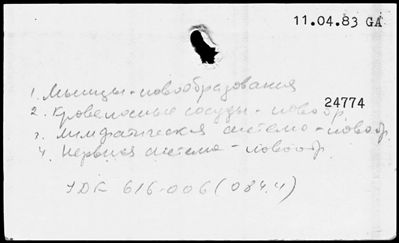 11.04.83 GA
1. Мышцы - новообразования
24774
2. Кровеносные сосуды - новообр.
3. Лимфатическая система - новообр.
4. Нервная система - новообр.
УДК 616-006(084.4)